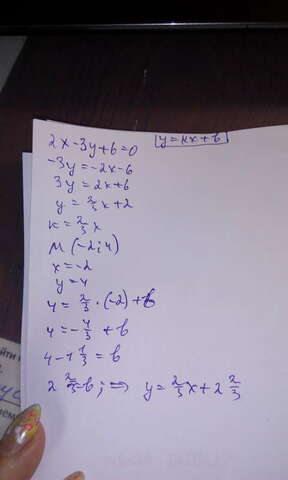 2x-3y+6=0
y=kx+b
-3y=-2x-6
3y=2x+6
y=2/3x+2
k=2/3x
M(-2;4)
x=-2
y=4
4=2/3·(-2)+b
4=-4/3+b
4-1 1/3=b
2 2/3=b; ⇒ y=2/3x+2 2/3